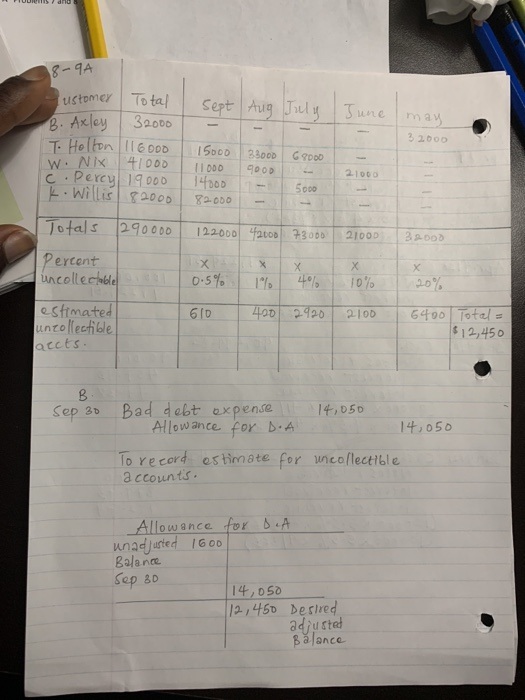 8-9A
Customer Total Sept Aug July June may
B. Axley 32000 - - - - 32000
T. Holton 116000 15000 33000 68000 - -
W. Nix 41000 11000 9000 - 21000 -
C. Percy 19000 14000 - 5000 - -
K. Willis 82000 82000 - - - -
Totals 290000 122000 42000 73000 21000 32000
Percent x x x x x
uncollectable 0.5% 1% 4% 10% 20%
estimated 610 420 2920 2100 6400 Total =
uncollectible $12,450
accts.
B
Sep 30 Bad debt expense 14,050
Allowance for D.A 14,050
To record estimate for uncollectible
accounts.
Allowance for D.A
unadjusted 1600
Balance
Sep 30
14,050
12,450 Desired
adjusted
Balance